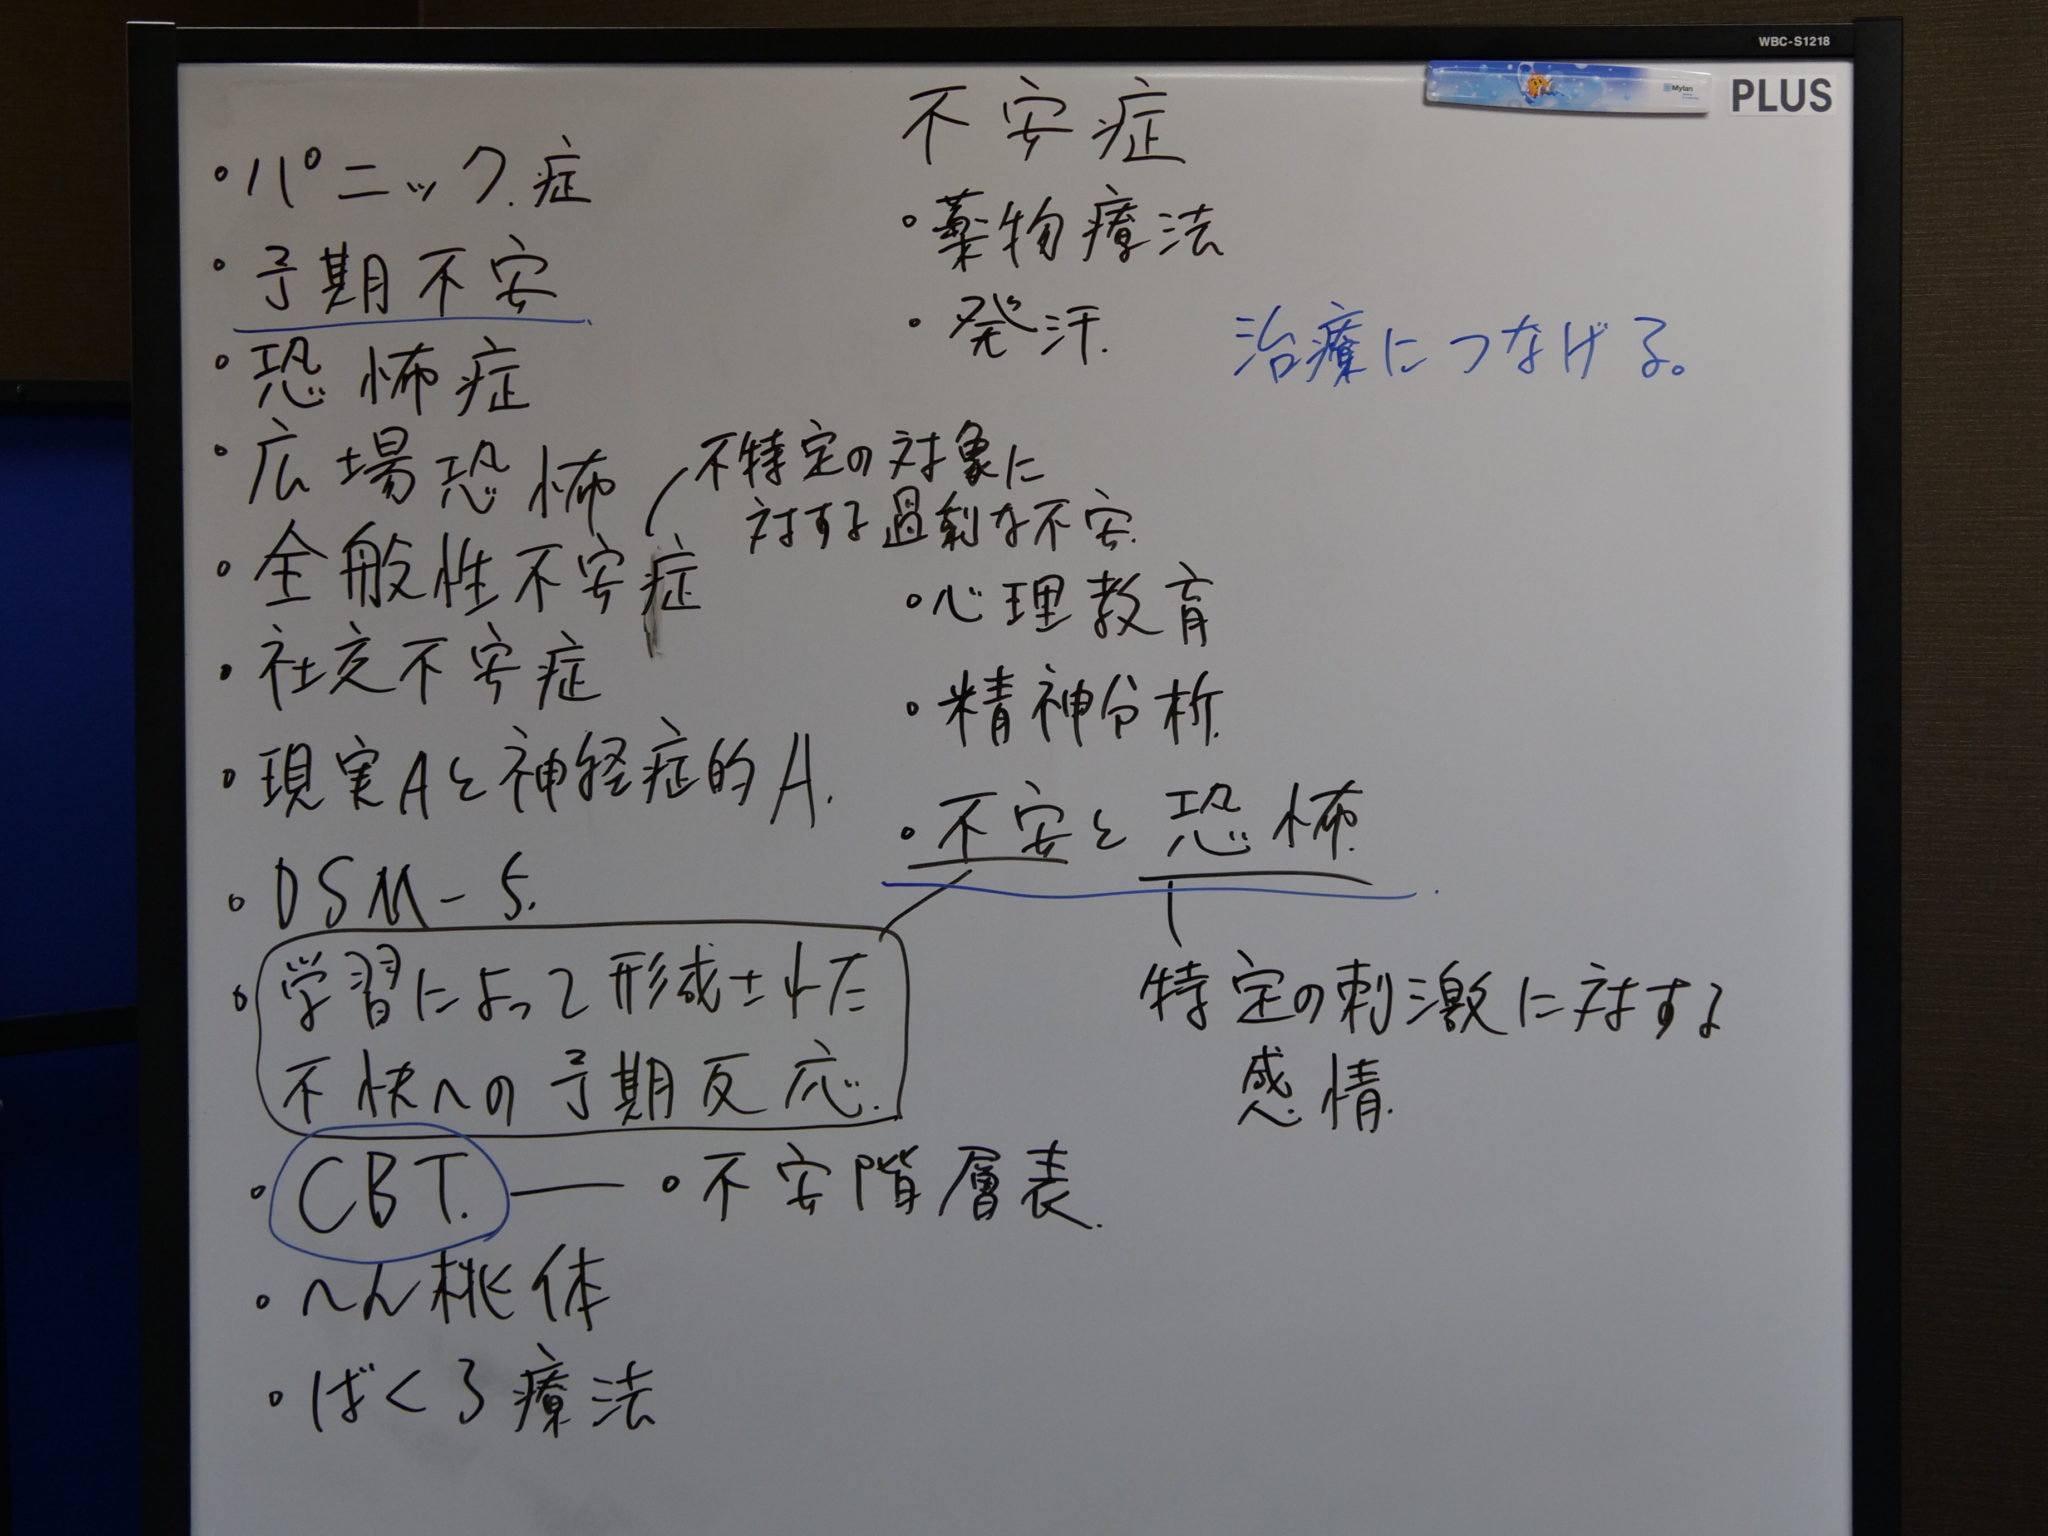 WBC-S1218
PLUS
Mylan
不安症
・パニック症
・予期不安
・恐怖症
・広場恐怖
・全般性不安症
不特定の対象に
対する過剰な不安.
・社交不安症
・現実Aと神経症的A.
・DSM-5.
・学習によって形成された
不快への予期反応.
・CBT. ― ・不安階層表.
・へん桃体
・ばくろ療法
・薬物療法
・発汗.
治療につなげる。
・心理教育
・精神分析.
・不安と恐怖.
特定の刺激に対する
感情.